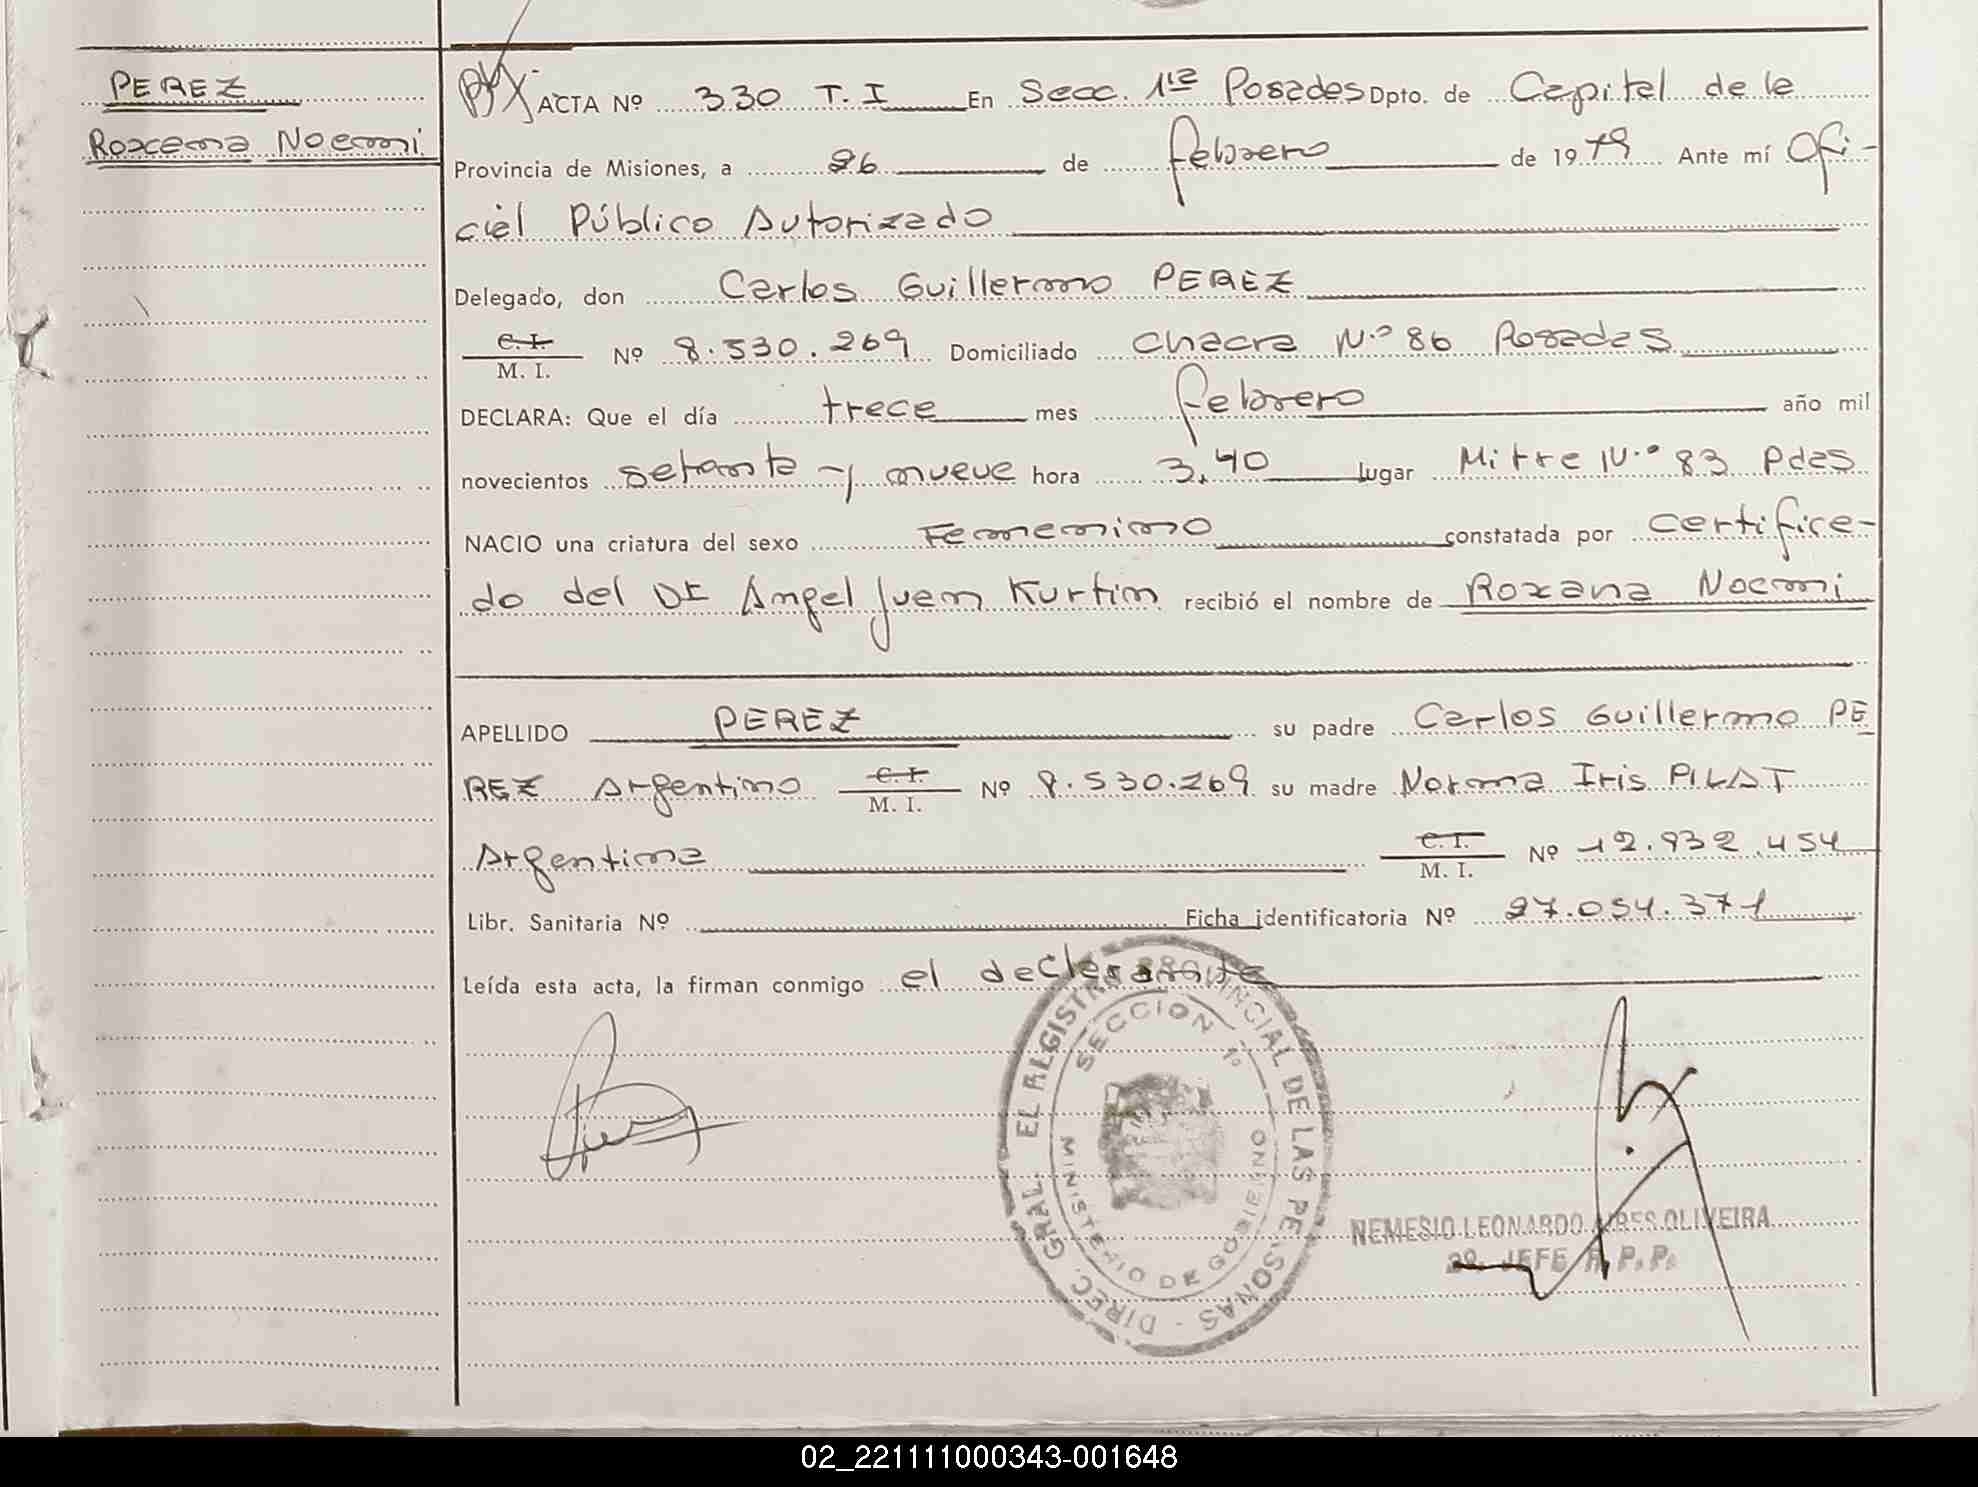 PEREZ
Roxana Noemi
ACTA Nº 330 T. I En Secc. 1ra Posadas Dpto. de Capital de la
Provincia de Misiones, a 26 de febrero de 1979 Ante mí Ofi-
cial Público Autorizado
Delegado, don Carlos Guillermo PEREZ
C. I.
M. I. Nº 8.530.269 Domiciliado Chacra N.º 86 Posadas
DECLARA: Que el día trece mes febrero año mil
novecientos setenta y nueve hora 3,40 lugar Mitre N.º 83 Pdas
NACIO una criatura del sexo Femenino constatada por certifica-
do del Dr Angel Juan Kurtin recibió el nombre de Roxana Noemi
APELLIDO PEREZ su padre Carlos Guillermo PE
REZ Argentino C. I. M. I. Nº 8.530.269 su madre Norma Iris PILAT
Argentina C. I. M. I. Nº 12.932.454
Libr. Sanitaria Nº Ficha identificatoria Nº 27.054.371
Leída esta acta, la firman conmigo el declarante
DIREC. GRAL. EL REGISTRO PROVINCIAL DE LAS PERSONAS -
SECCION 1º
MINISTERIO DE GOBIERNO
NEMESIO LEONARDO AIRES OLIVEIRA
2º JEFE R. P. P.
02_221111000343-001648